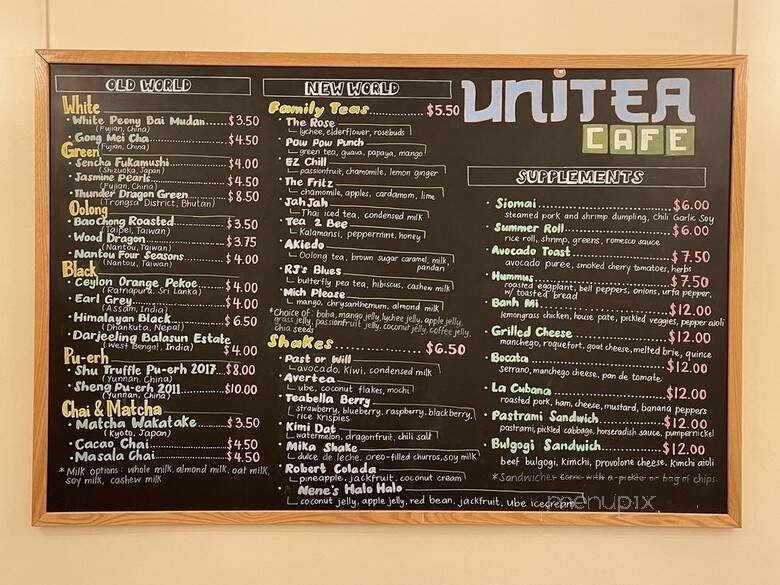 OLD WORLD
White
• White Peony Bai Mudan.....$3.50
(Fujian, China)
• Gong Mei Cha..........$4.50
(Fujian, China)
Green
• Sencha Fukamushi..........$4.00
(Shizuoka, Japan)
• Jasmine Pearls..........$4.50
(Fujian, China)
• Thunder Dragon Green....$8.50
(Trongsa District, Bhutan)
Oolong
• BaoChong Roasted..........$3.50
(Taipei, Taiwan)
• Wood Dragon..........$3.75
(Nantou, Taiwan)
• Nantou Four Seasons.......$4.00
(Nantou, Taiwan)
Black
• Ceylon Orange Pekoe....$4.00
(Ratnapura, Sri Lanka)
• Earl Grey..........$4.00
(Assam, India)
• Himalayan Black..........$6.50
(Dhankuta, Nepal)
• Darjeeling Balasun Estate
(West Bengal, India) $4.00
Pu-erh
• Shu Truffle Pu-erh 2017...$8.00
(Yunnan, China)
• Sheng Pu-erh 2011..........$10.00
(Yunnan, China)
Chai & Matcha
• Matcha Wakatake..........$3.50
(Kyoto, Japan)
• Cacao Chai..........$4.50
• Masala Chai..........$4.50
*Milk options: whole milk, almond milk, oat milk,
soy milk, cashew milk
NEW WORLD
Family Teas..........$5.50
• The Rose
lychee, elderflower, rosebuds
• Pow Pow Punch
green tea, guava, papaya, mango
• EZ Chill
passionfruit, chamomile, lemon ginger
• The Fritz
chamomile, apples, cardamom, lime
• Jah Jah
Thai iced tea, condensed milk
• Tea 2 Bee
Kalamansi, peppermint, honey
• Akiedo
Oolong tea, brown sugar caramel, milk
pandan
• RJ's Blues
butterfly pea tea, hibiscus, cashew milk
• Mich Please
mango, chrysanthemum, almond milk
*Choice of: boba, mango jelly, lychee jelly, apple jelly,
grass jelly, passionfruit jelly, coconut jelly, coffee jelly,
chia seeds
Shakes..........$6.50
• Past or Will
avocado, kiwi, condensed milk
• Avertea
ube, coconut flakes, mochi
• Teabella Berry
strawberry, blueberry, raspberry, blackberry,
rice krispies
• Kimi Dat
watermelon, dragonfruit, chili salt
• Mika Shake
dulce de leche, oreo-filled churros, soy milk
• Robert Colada
pineapple, jackfruit, coconut cream
• Nene's Halo Halo
coconut jelly, apple jelly, red bean, jackfruit, ube icecream
UNITEA
CAFE
SUPPLEMENTS
• Siomai..........$6.00
steamed pork and shrimp dumpling, chili Garlic Soy
• Summer Roll..........$6.00
rice roll, shrimp, greens, romesco sauce
• Avocado Toast..........$7.50
avocado puree, smoked cherry tomatoes, herbs
• Hummus..........$7.50
roasted eggplant, bell peppers, onions, urfa pepper,
w/ toasted bread
• Banh Mi..........$12.00
lemongrass chicken, house pate, pickled veggies, pepper aioli
• Grilled Cheese..........$12.00
manchego, roquefort, goat cheese, melted brie, quince
• Bocata..........$12.00
serrano, manchego cheese, pan de tomate
• La Cubana..........$12.00
roasted pork, ham, cheese, mustard, banana peppers
• Pastrami Sandwich..........$12.00
pastrami, pickled cabbage, horseradish sauce, pumpernickel
• Bulgogi Sandwich..........$12.00
beef bulgogi, kimchi, provolone cheese, kimchi aioli
*Sandwiches come with a pickle or bag of chips.
menupix